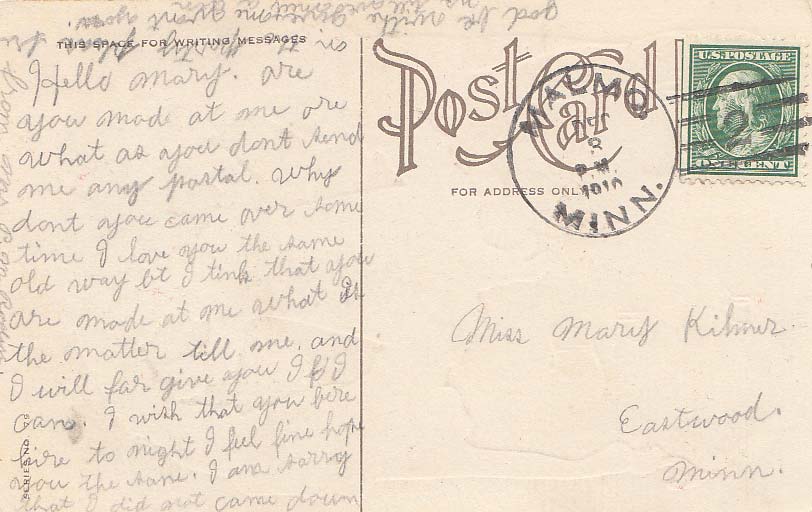 THIS SPACE FOR WRITING MESSAGES
Hello mary. are
you made at me ore
what as you dont send
me any postal. Why
dont you came over some
time I love you the same
old way bt I tink that you
are made at me what is
the matter till me. and
I will far give you If I
can. I wish that you bire
hire to night I feel fine hope
you the same. I am sarry
that I did not came down
it is
god be write
SERIES NO.
Post Card
FOR ADDRESS ONLY
MALMO
8
P.M.
1910
MINN.
U.S. POSTAGE
ONE CENT
Miss Mary Kilmer.
Eastwood.
Minn.